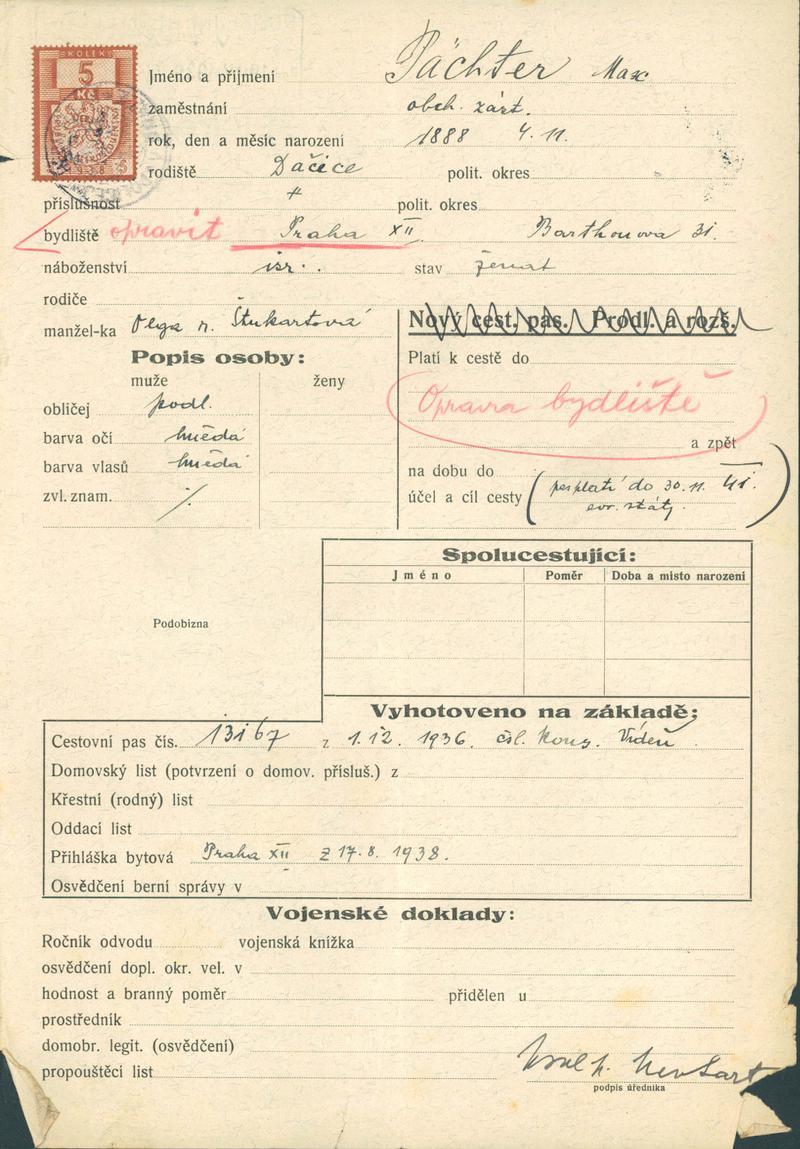 KOLEK
5
Kč
1938
Jméno a příjmení Pächter Max
zaměstnání obch. zást.
rok, den a měsíc narození 1888 4. 11.
rodiště Dačice polit. okres
příslušnost + polit. okres
bydliště opravit Praha XII Barthouova 31.
náboženství isr. stav ženat
rodiče
manžel-ka Olga r. Štukartová
Nový cest. pas. Prodl. a rozš.
Popis osoby:
Platí k cestě do
muže ženy
obličej podl.
Oprava bydliště
barva očí hnědá
a zpět
barva vlasů hnědá
na dobu do
zvl. znam. ⁒
účel a cíl cesty (pas platí do 30. 11. 41.
evr. státy.)
Spolucestující:
Jméno Poměr Doba a místo narození
Podobizna
Vyhotoveno na základě:
Cestovní pas čís. 13167 z 1. 12. 1936. čsl. konz. Vídeň
Domovský list (potvrzení o domov. přísluš.) z
Křestní (rodný) list
Oddací list
Přihláška bytová Praha XII z 17. 8. 1938.
Osvědčení berní správy v
Vojenské doklady:
Ročník odvodu vojenská knížka
osvědčení dopl. okr. vel. v
hodnost a branný poměr přidělen u
prostředník
domobr. legit. (osvědčení)
propouštěcí list
podpis úředníka